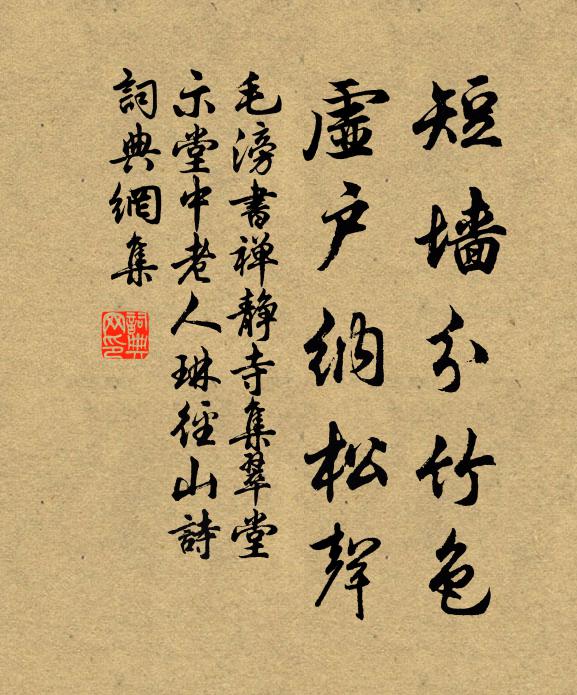 短墙分竹色
虛户纳松聲
毛滂書禅静寺集翠堂
示堂中老人琳径山詩
詞典網集
詞典网印